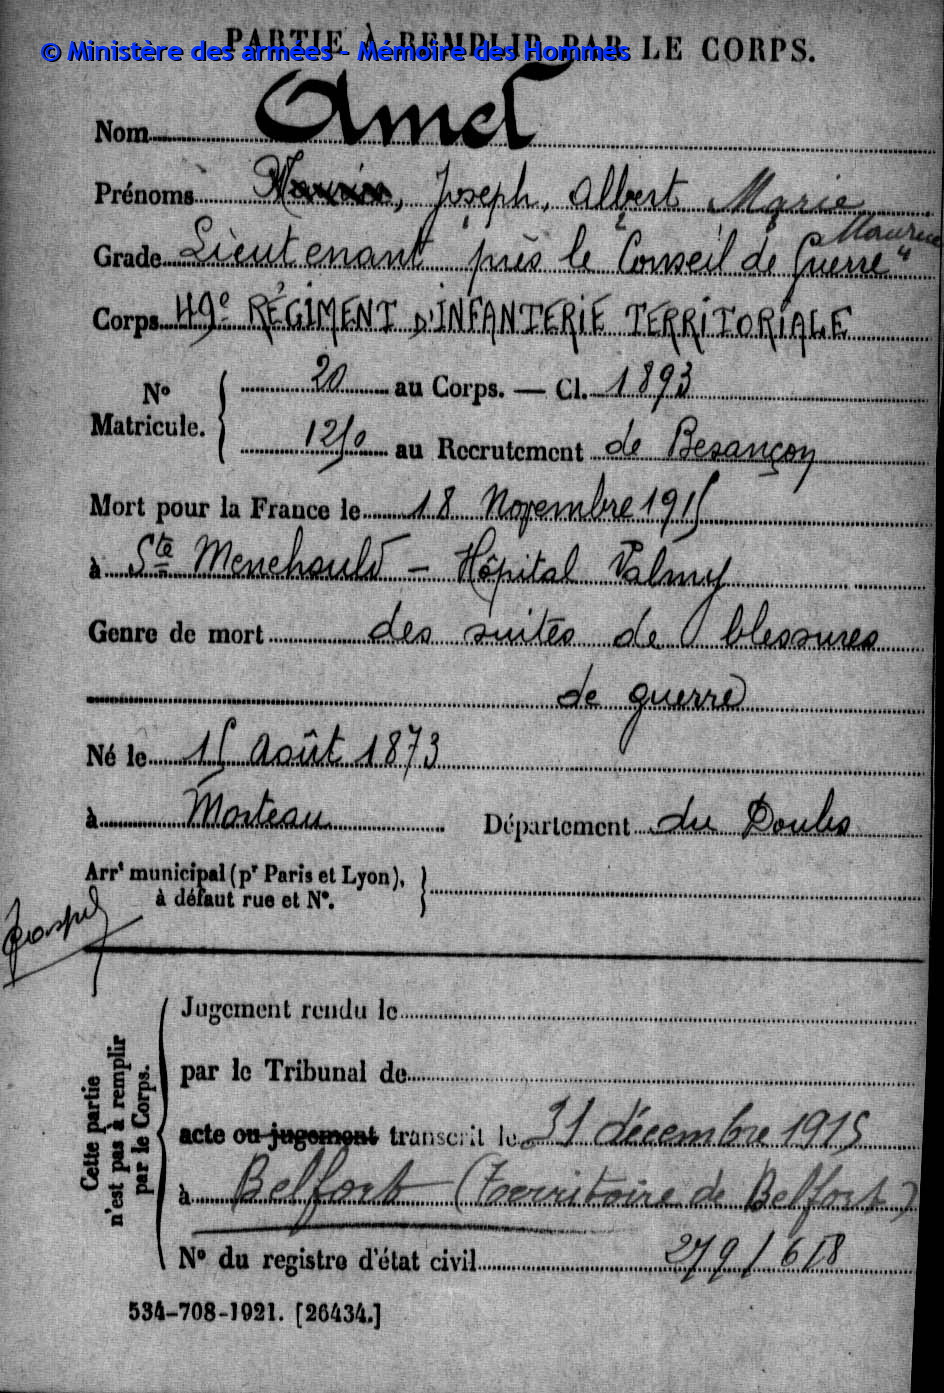 PARTIE À REMPLIR PAR LE CORPS.
© Ministère des armées - Mémoire des Hommes
Nom Amet
Prénoms Maurice, Joseph, Albert Marie
Maurice
Grade Lieutenant près le Conseil de Guerre
Corps 49e RÉGIMENT D'INFANTERIE TERRITORIALE
No Matricule. 20 au Corps. — Cl. 1893
1250 au Recrutement de Besançon
Mort pour la France le 18 Novembre 1915
à Ste Menehould - Hôpital Valmy
Genre de mort des suites de blessures
de guerre
Né le 15 Août 1873
à Morteau Département du Doubs
Arrt municipal (pr Paris et Lyon),
à défaut rue et No.
Cette partie
n'est pas à remplir
par le Corps.
Jugement rendu le
par le Tribunal de
acte ou jugement transcrit le 31 décembre 1915
à Belfort (Territoire de Belfort)
No du registre d'état civil 279/618
534-708-1921. [26434.]